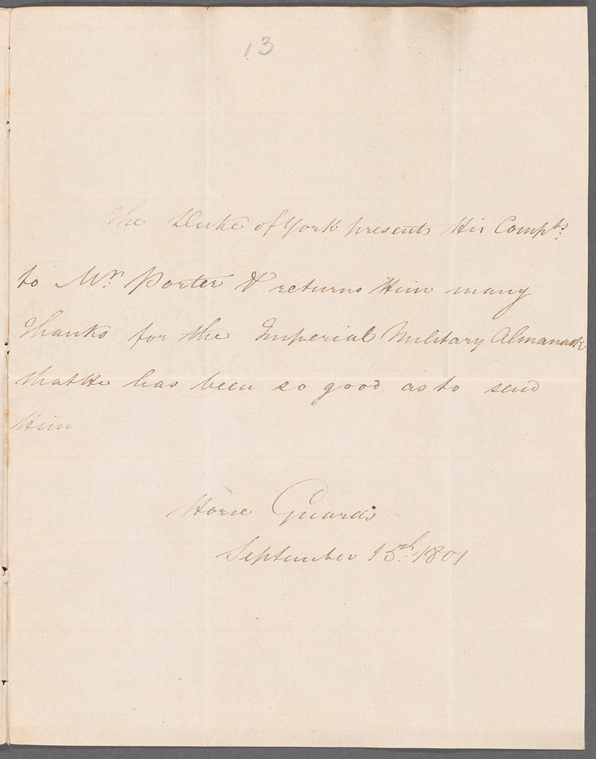 13
The Duke of York presents His Compts:
to Mr Porter & returns Him many
thanks for the Imperial Military Almanack
that He has been so good as to send
Him
Horse Guards
September 15th: 1801